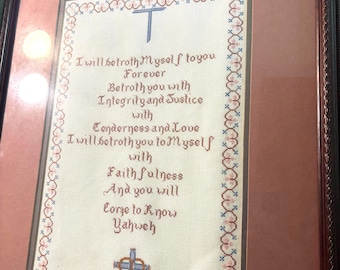 I will betroth Myself to you
Forever
Betroth you with
Integrity and Justice
with
Tenderness and Love
I will betroth you to Myself
with
Faithfulness
And you will
Come to Know
Yahweh